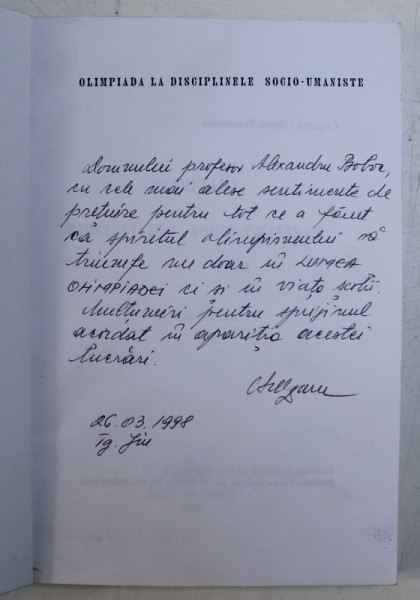 OLIMPIADA LA DISCIPLINELE SOCIO-UMANISTE
Domnului profesor Alexandru Boboc,
cu cele mai alese sentimente de
prețuire pentru tot ce a făcut
ca spiritul olimpismului să
triumfe nu doar în LUMEA
OLIMPIADEI ci și în viața școlii.
Mulțumiri pentru sprijinul
acordat în apariția acestei
lucrări.
26.03.1998
Tg. Jiu